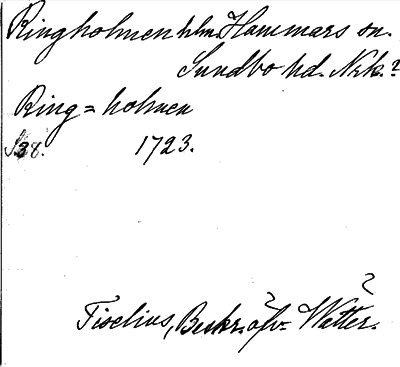 Ringholmen hlm. ? Hammars sn.
Sundbo hd. Nrk.?
Ring=holmen
S. 38. 1723.
Tiselius, Beskr. öfv. Wätter.